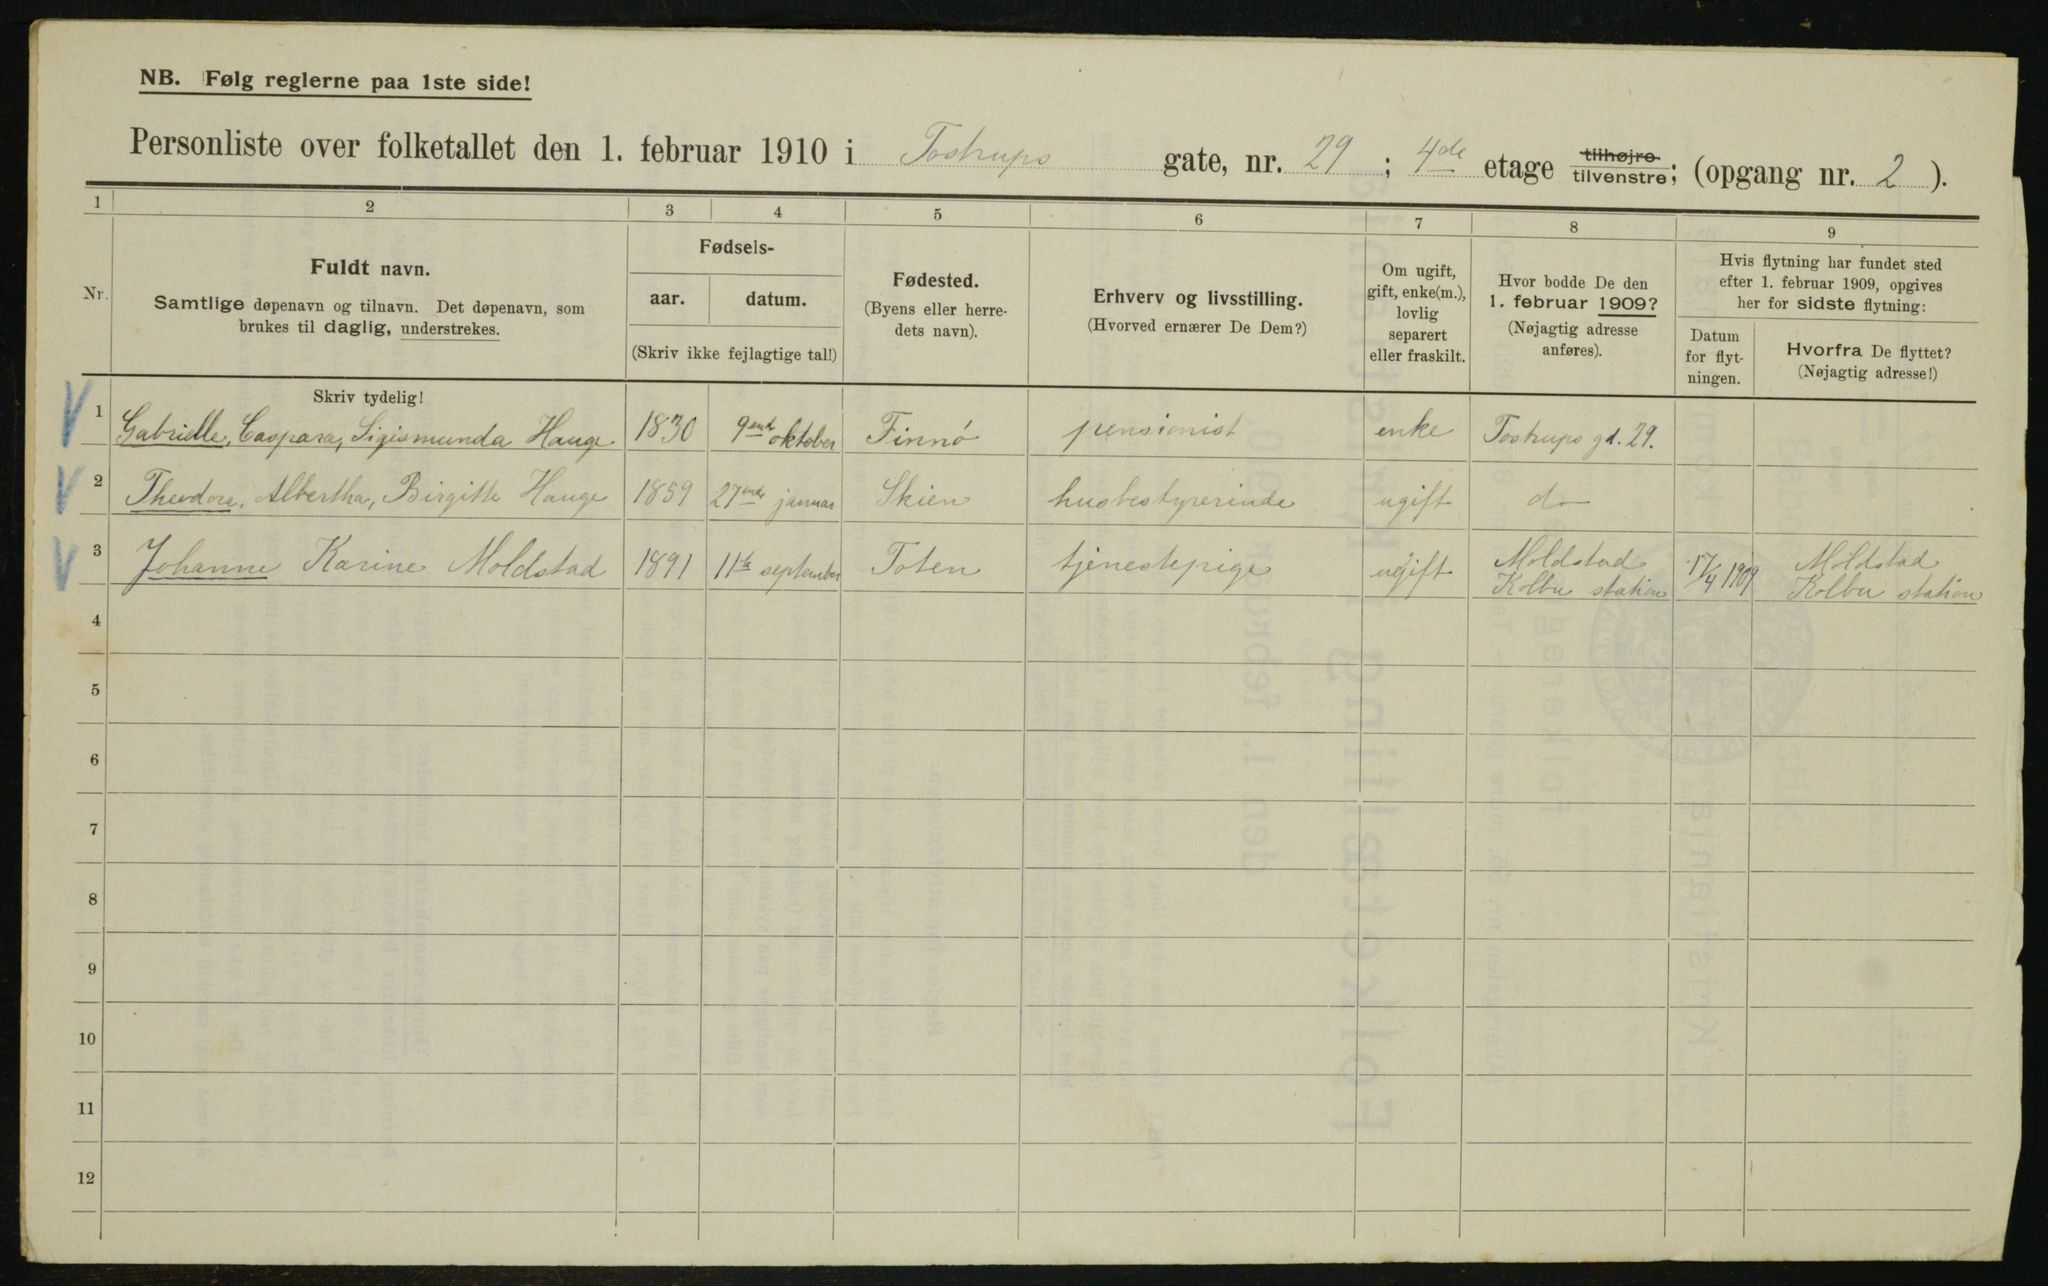 NB. Følg reglerne paa 1ste side!
Personliste over folketallet den 1. februar 1910 i Tostrups gate, nr. 29 ; 4de etage tilhøjre tilvenstre; (opgang nr. 2 ).
1 2 3 4 5 6 7 8 9
Nr.
Fuldt navn.
Samtlige døpenavn og tilnavn. Det døpenavn, som
brukes til daglig, understrekes.
Fødsels-
aar. datum.
(Skriv ikke fejlagtige tal!)
Fødested.
(Byens eller herre-
dets navn).
Erhverv og livsstilling.
(Hvorved ernærer De Dem?)
Om ugift,
gift, enke(m.),
lovlig
separert
eller fraskilt.
Hvor bodde De den
1. februar 1909?
(Nøjagtig adresse
anføres).
Hvis flytning har fundet sted
efter 1. februar 1909, opgives
her for sidste flytning:
Datum
for flyt-
ningen.
Hvorfra De flyttet?
(Nøjagtig adresse!)
Skriv tydelig!
1 Gabrielle, Caspara, Sigismunda Hauge 1830 9end oktober Finnö pensionist enke Tostrups gd. 29.
2 Theodora, Albertha, Birgitte Hauge 1859 27end januar Skien husbestyrerinde ugift do
3 Johanne Karine Moldstad 1891 11te september Toten tjenestepige ugift Moldstad Kolbu station 17/4 1909 Moldstad Kolbu station
4
5
6
7
8
9
10
11
12